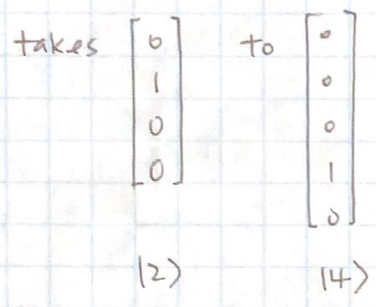 takes [0 1 0 0] to [0 0 0 1 0]
|2⟩ |4⟩